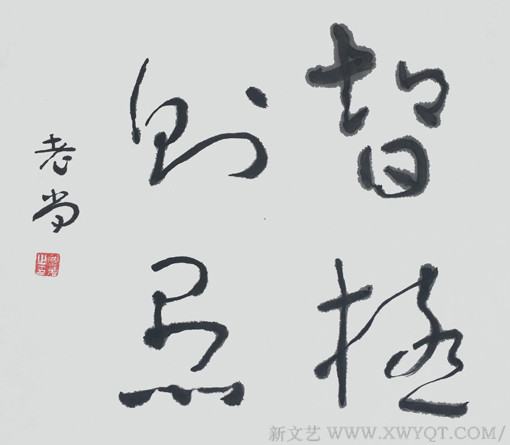 智極
則愚
老尚
新文艺 WWW.XWYQT.COM/